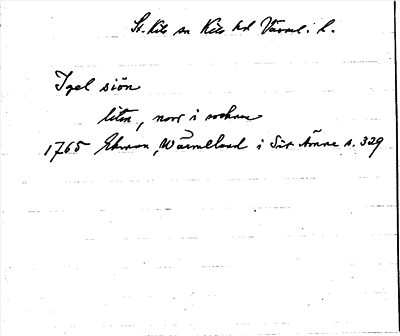 St. Kils sn Kils hd Värml. l.
Igel siön
liten, norr i socknen
1765 Ehman, Wärmeland i Sitt Ämne s. 329